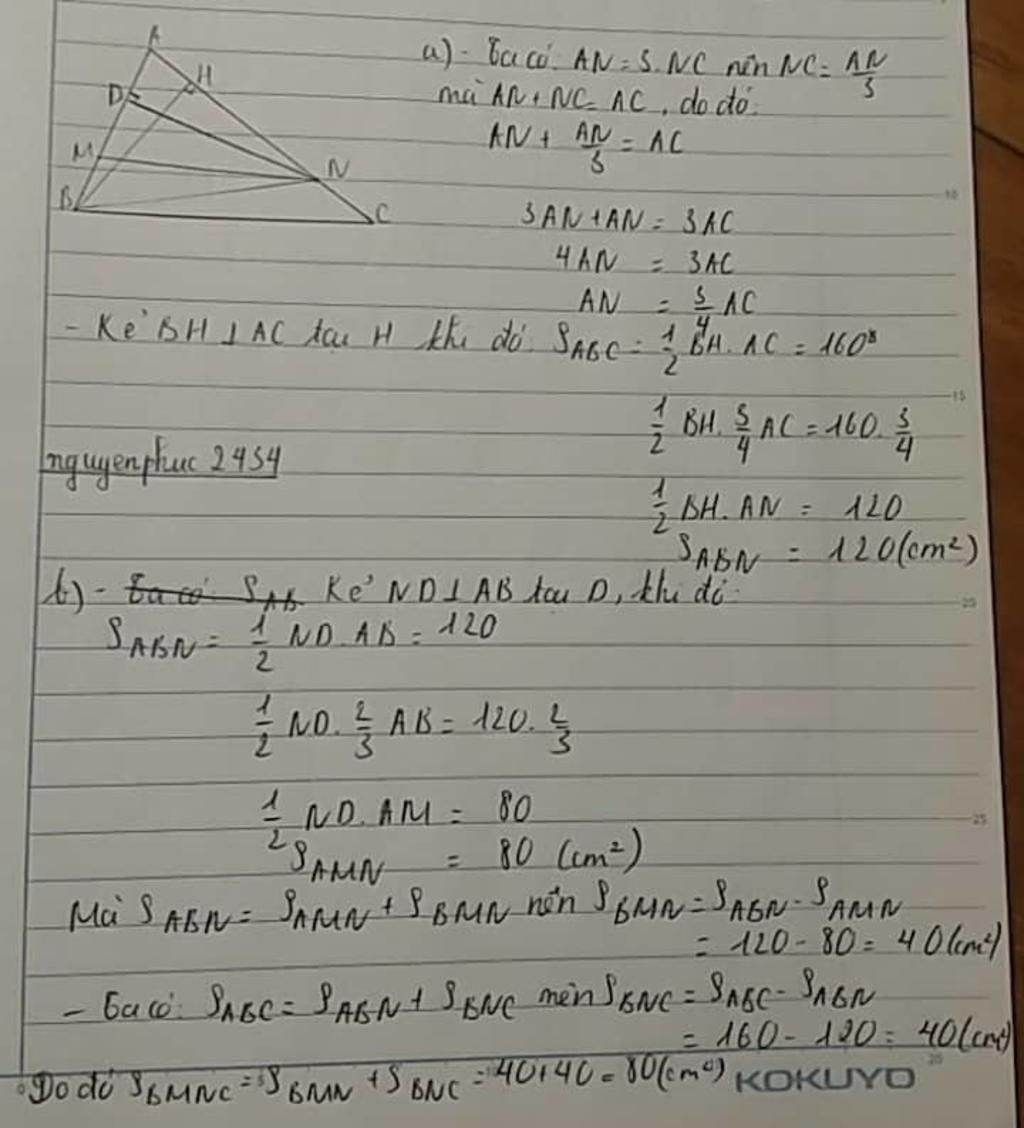 A
H
D
M
N
B
C
a) - Ta có: AN = 3.NC nên NC = AN/3
mà AN + NC = AC, do đó:
AN + AN/3 = AC
10
3AN + AN = 3AC
4AN = 3AC
AN = 3/4 AC
- Kẻ BH ⊥ AC tại H khi đó: S_ABC = 1/2 BH. AC = 160
15
1/2 BH. 3/4 AC = 160. 3/4
nguyenphuc 2454
1/2 BH. AN = 120
S_ABN = 120 (cm²)
b) - Ta có: S_AB Kẻ ND ⊥ AB tại D, khi đó:
20
S_ABN = 1/2 ND. AB = 120
1/2 ND. 2/3 AB = 120. 2/3
1/2 ND. AM = 80
25
S_AMN = 80 (cm²)
Mà S_ABN = S_AMN + S_BMN nên S_BMN = S_ABN - S_AMN
= 120 - 80 = 40 (cm²)
- Ta có: S_ABC = S_ABN + S_BNC nên S_BNC = S_ABC - S_ABN
= 160 - 120 = 40 (cm²)
Do đó S_BMNC = S_BMN + S_BNC = 40 + 40 = 80 (cm²) KOKUYO